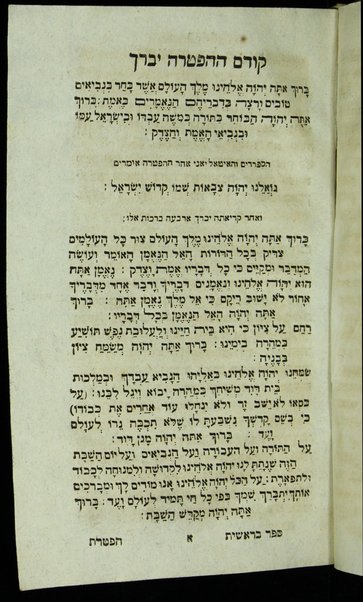 קודם ההפטרה יברך
בָּרוּךְ אַתָּה יְהֹוָה אֱלֹהֵינוּ מֶלֶךְ הָעוֹלָם אֲשֶׁר בָּחַר בִּנְבִיאִים
טוֹבִים וְרָצָה בְדִבְרֵיהֶם הַנֶּאֱמָרִים בֶּאֱמֶת: בָּרוּךְ
אַתָּה יְהֹוָה הַבּוֹחֵר בַּתּוֹרָה בְּמֹשֶׁה עַבְדּוֹ וּבְיִשְׂרָאֵל עַמּוֹ
וּבִנְבִיאֵי הָאֱמֶת וְהַצֶּדֶק:
הספרדים והאיטאליאני אחר ההפטרה אומרים
גּוֹאֲלֵנוּ יְהֹוָה צְבָאוֹת שְׁמוֹ קְדוֹשׁ יִשְׂרָאֵל:
ואחר קריאתה יברך ארבעה ברכות אלו:
בָּרוּךְ אַתָּה יְהֹוָה אֱלֹהֵינוּ מֶלֶךְ הָעוֹלָם צוּר כָּל הָעוֹלָמִים
צַדִּיק בְּכָל הַדּוֹרוֹת הָאֵל הַנֶּאֱמָן הָאוֹמֵר וְעוֹשֶׂה
הַמְדַבֵּר וּמְקַיֵּם כִּי כָל דְּבָרָיו אֱמֶת וָצֶדֶק: נֶאֱמָן אַתָּה
הוּא יְהֹוָה אֱלֹהֵינוּ וְנֶאֱמָנִים דְּבָרֶיךָ וְדָבָר אֶחָד מִדְּבָרֶיךָ
אָחוֹר לֹא יָשׁוּב רֵיקָם כִּי אֵל מֶלֶךְ נֶאֱמָן אַתָּה: בָּרוּךְ
אַתָּה יְהֹוָה הָאֵל הַנֶּאֱמָן בְּכָל דְּבָרָיו:
רַחֵם עַל צִיּוֹן כִּי הִיא בֵּית חַיֵּינוּ וְלַעֲלוּבַת נֶפֶשׁ תּוֹשִׁיעַ
בִּמְהֵרָה בְיָמֵינוּ: בָּרוּךְ אַתָּה יְהֹוָה מְשַׂמֵּחַ צִיּוֹן
בְּבָנֶיהָ:
שַׂמְּחֵנוּ יְהֹוָה אֱלֹהֵינוּ בְּאֵלִיָּהוּ הַנָּבִיא עַבְדֶּךָ וּבְמַלְכוּת
בֵּית דָּוִד מְשִׁיחֶךָ בִּמְהֵרָה יָבוֹא וְיָגֵל לִבֵּנוּ: (עַל
כִּסְאוֹ לֹא יֵשֵׁב זָר וְלֹא יִנְחֲלוּ עוֹד אֲחֵרִים אֶת כְּבוֹדוֹ)
כִּי בְשֵׁם קָדְשְׁךָ נִשְׁבַּעְתָּ לּוֹ שֶׁלֹּא תִכְבֶּה נֵרוֹ לְעוֹלָם
וָעֶד: בָּרוּךְ אַתָּה יְהֹוָה מָגֵן דָּוִד:
עַל הַתּוֹרָה וְעַל הָעֲבוֹדָה וְעַל הַנְּבִיאִים וְעַל יוֹם הַשַּׁבָּת
הַזֶּה שֶׁנָּתַתָּ לָּנוּ יְהֹוָה אֱלֹהֵינוּ לִקְדוּשָּׁה וְלִמְנוּחָה לְכָבוֹד
וּלְתִפְאָרֶת: עַל הַכֹּל יְהֹוָה אֱלֹהֵינוּ אָנוּ מוֹדִים לָךְ וּמְבָרְכִים
אוֹתָךְ יִתְבָּרַךְ שִׁמְךָ בְּפִי כָל חַי תָּמִיד לְעוֹלָם וָעֶד: בָּרוּךְ
אַתָּה יְהֹוָה מְקַדֵּשׁ הַשַּׁבָּת:
ספר בראשית א הפטרת